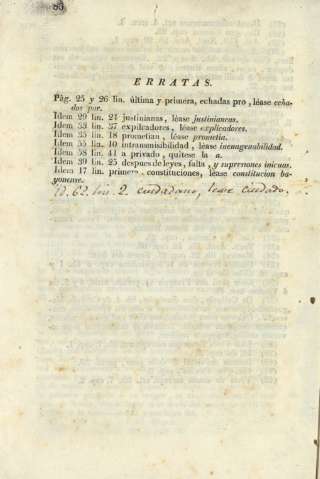 ERRATAS.
Pág. 25 y 26 lin. última y primera, echadas pro, léase echa-
das por.
Idem 29 lin. 24 justinianas, léase justinianeas.
Idem 33 lin. 37 explicadores, léase explicadores.
Idem 35 lin. 18 prometian, léase prometia.
Idem 55 lin. 10 intransmisibilidad, léase inenagenabilidad.
Idem 58 lin. 41 a privado, quitese la a.
Idem 39 lin. 25 despues de leyes, falta, y supresiones inicuas.
Idem 17 lin. primera, constituciones, léase constitucion ba-
yonense.
Id. 62. lin. 2. ciudadano, lease ciudado.